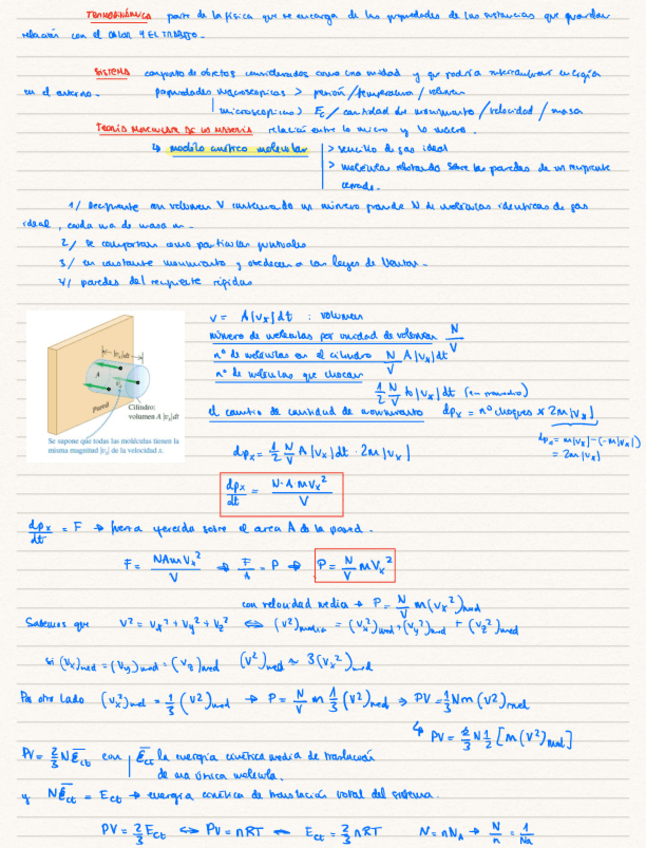 TERMODINÁMICA parte de la física que se encarga de las propiedades de las sustancias que guardan
relación con el calor y EL TRABAJO.
SISTEMA conjunto de objetos considerados como una unidad y que podría intercambiar energía
en el externo. propiedades macroscópicas > presión/temperatura/volumen
microscópicas) Ec/cantidad de movimiento/velocidad/masa
TEORÍA MOLECULAR DE LA MATERIA relación entre lo micro y lo macro.
↳ modelo cinético molecular > sencillo de gas ideal
> moléculas rebotando sobre las paredes de un recipiente
cerrado.
1/ Recipiente con volumen V conteniendo un número grande N de moléculas idénticas de gas
ideal, cada una de masa m.
2/ se comportan como partículas puntuales
3/ en constante movimiento y obedecen a las leyes de Newton.
4/ paredes del recipiente rígidas
v = A|vx|dt : volumen
número de moléculas por unidad de volumen N/V
nº de moléculas en el cilindro N/V A|vx|dt
nº de moléculas que chocan
1/2 N/V A|vx|dt (en promedio)
el cambio de cantidad de movimiento dpx = nº choques × 2m|vx|
dpx = m|vx|-(-m|vx|)
= 2m|vx|
|vx|dt
A
vx
Pared
Cilindro:
volumen A|vx|dt
Se supone que todas las moléculas tienen la
misma magnitud |vx| de la velocidad x.
dpx = 1/2 N/V A|vx|dt · 2m|vx|
dpx/dt = N·A·mvx²/V
dpx/dt = F → fuerza ejercida sobre el area A de la pared.
F = NAmVx²/V → F/A = P → P = N/V mVx²
con velocidad media → P = N/V m(vx²)med
Sabemos que v² = vx² + vy² + vz² ⇔ (v²)media = (vx²)med + (vy²)med + (vz²)med
si (vx)med = (vy)med = (vz)med (v²)med ≈ 3(vx²)med
Por otro lado (vx²)med = 1/3 (v²)med → P = N/V m 1/3 (v²)med → PV = 1/3 Nm(v²)med
↳ PV = 2/3 N 1/2 [m(v²)med]
PV = 2/3 N Ect con Ect la energía cinética media de traslación
de una única molécula.
y N Ect = Ect → energía cinética de traslación total del sistema.
PV = 2/3 Ect ⇔ PV = nRT ⇔ Ect = 2/3 nRT N = nNA → N/n = 1/Na